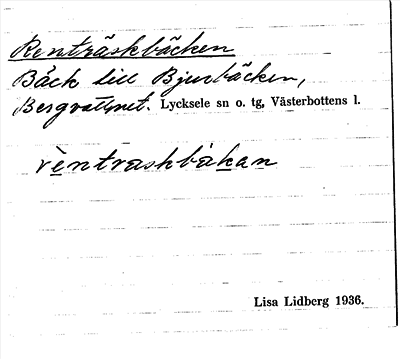 Renträskbäcken
Bäck till Bjurbäcken,
Bergvattnet. Lycksele sn o. tg, Västerbottens l.
rèntraskbäkan
Lisa Lidberg 1936.